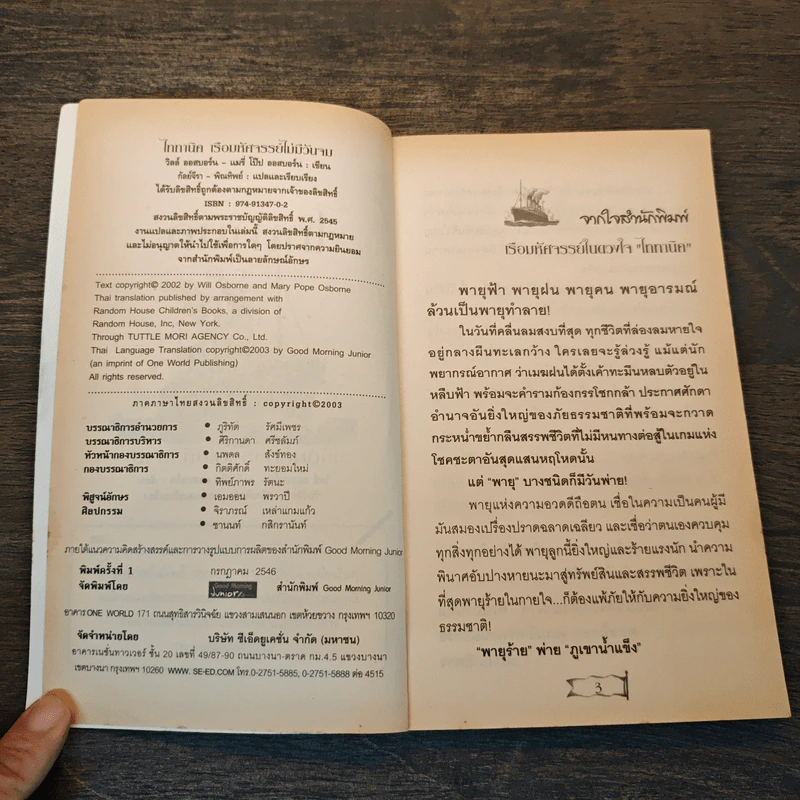 ไททานิค เรือมหัศจรรย์ไม่มีวันจม
วิลล์ ออสบอร์น - แมรี่ โป๊ป ออสบอร์น : เขียน
กัลย์จีรา - พิณทิพย์ : แปลและเรียบเรียง
ได้รับลิขสิทธิ์ถูกต้องตามกฎหมายจากเจ้าของลิขสิทธิ์
ISBN : 974-91347-0-2
สงวนลิขสิทธิ์ตามพระราชบัญญัติลิขสิทธิ์ พ.ศ. 2545
งานแปลและภาพประกอบในเล่มนี้ สงวนลิขสิทธิ์ตามกฎหมาย
และไม่อนุญาตให้นำไปใช้เพื่อการใดๆ โดยปราศจากความยินยอม
จากสำนักพิมพ์เป็นลายลักษณ์อักษร
Text copyright© 2002 by Will Osborne and Mary Pope Osborne
Thai translation published by arrangement with
Random House Children's Books, a division of
Random House, Inc, New York.
Through TUTTLE MORI AGENCY Co., Ltd.
Thai Language Translation copyright©2003 by Good Morning Junior
(an imprint of One World Publishing)
All rights reserved.
ภาคภาษาไทยสงวนลิขสิทธิ์ : copyright©2003
บรรณาธิการอำนวยการ • ภูริทัต รัศมีเพชร
บรรณาธิการบริหาร • ศิริกานดา ศรีชลัมภ์
หัวหน้ากองบรรณาธิการ • นพดล สังข์ทอง
กองบรรณาธิการ • กิตติศักดิ์ ทะยอมใหม่
• ทิพย์ภาพร รัตนะ
พิสูจน์อักษร • เอมออน พรวาปี
ศิลปกรรม • จิราภรณ์ เหล่าแกมแก้ว
• ชานนท์ กสิกรานันท์
ภายใต้แนวความคิดสร้างสรรค์และการวางรูปแบบการผลิตของสำนักพิมพ์ Good Morning Junior
พิมพ์ครั้งที่ 1 กรกฎาคม 2546
จัดพิมพ์โดย Good Morning Junior สำนักพิมพ์ Good Morning Junior
อาคาร ONE WORLD 171 ถนนสุทธิสารวินิจฉัย แขวงสามเสนนอก เขตห้วยขวาง กรุงเทพฯ 10320
จัดจำหน่ายโดย บริษัท ซีเอ็ดยูเคชั่น จำกัด (มหาชน)
อาคารเนชั่นทาวเวอร์ ชั้น 20 เลขที่ 49/87-90 ถนนบางนา-ตราด กม.4.5 แขวงบางนา
เขตบางนา กรุงเทพฯ 10260 WWW. SE-ED.COM โทร.0-2751-5885, 0-2751-5888 ต่อ 4515
จากใจสำนักพิมพ์
เรือมหัศจรรย์ในดวงใจ "ไททานิค"
พายุฟ้า พายุฝน พายุคน พายุอารมณ์
ล้วนเป็นพายุทำลาย!
ในวันที่คลื่นลมสงบที่สุด ทุกชีวิตที่ล่องลมหายใจ
อยู่กลางผืนทะเลกว้าง ใครเลยจะรู้ล่วงรู้ แม้แต่นัก
พยากรณ์อากาศ ว่าเมฆฝนได้ตั้งเค้าทะมึนหลบตัวอยู่ใน
หลืบฟ้า พร้อมจะคำรามก้องกรรโชกกล้า ประกาศศักดา
อำนาจอันยิ่งใหญ่ของภัยธรรมชาติที่พร้อมจะกวาด
กระหน่ำขย้ำกลืนสรรพชีวิตที่ไม่มีหนทางต่อสู้ในเกมแห่ง
โชคชะตาอันสุดแสนหฤโหดนั้น
แต่ "พายุ" บางชนิดก็มีวันพ่าย!
พายุแห่งความอวดดีถือตน เชื่อในความเป็นคนผู้มี
มันสมองเปรื่องปราดฉลาดเฉลียว และเชื่อว่าตนเองควบคุม
ทุกสิ่งทุกอย่างได้ พายุลูกนี้ยิ่งใหญ่และร้ายแรงนัก นำความ
พินาศอัปปางหายนะมาสู่ทรัพย์สินและสรรพชีวิต เพราะใน
ที่สุดพายุร้ายในกายใจ...ก็ต้องแพ้ภัยให้กับความยิ่งใหญ่ของ
ธรรมชาติ!
"พายุร้าย" พ่าย "ภูเขาน้ำแข็ง"
3